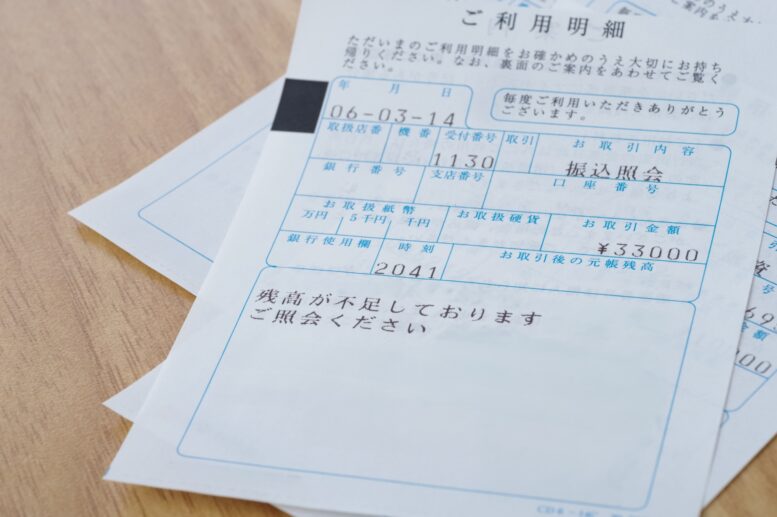 ご利用明細
ただいまのご利用明細をお確かめのうえ大切にお持ち
帰りください。なお、裏面のご案内をあわせてご覧く
ださい。
年 月 日
06-03-14
毎度ご利用いただきありがとう
ございます。
取扱店番 機番 受付番号 取引 お取引内容
1130 振込照会
銀行番号 支店番号 口座番号
お取扱紙幣 お取扱硬貨 お取引金額
万円 5千円 千円
¥33000
銀行使用欄 時刻 お取引後の元帳残高
2041
残高が不足しております
ご照会ください